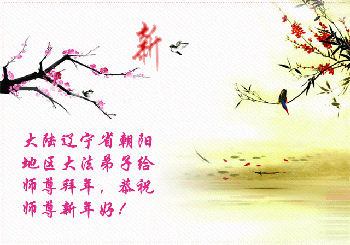 新
大陆辽宁省朝阳
地区大法弟子给
师尊拜年，恭祝
师尊新年好！